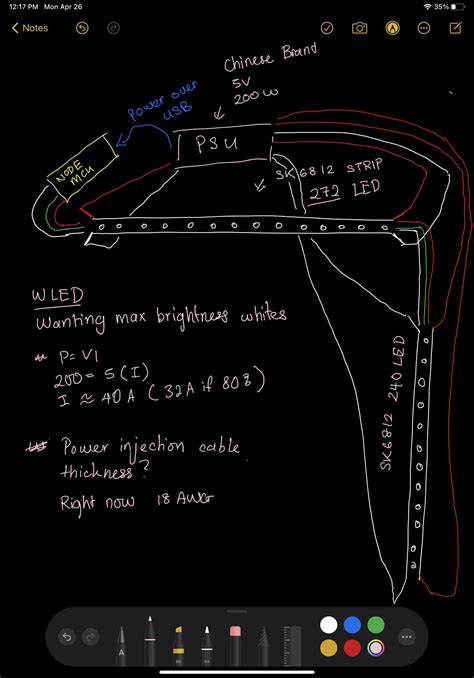 12:17 PM Mon Apr 26
35%
Notes
Chinese Brand
5V
200W
Power over
USB
PSU
NODE
MCU
SK6812 STRIP
272 LED
WLED
Wanting max brightness whites
P=VI
200 = 5(I)
I ≈ 40A (32A if 80%)
SK6812 240 LED
Power injection cable
thickness?
Right now 18 AWG
A